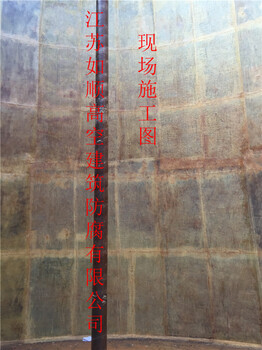 现场施工图
江苏如顺高空建筑防腐有限公司